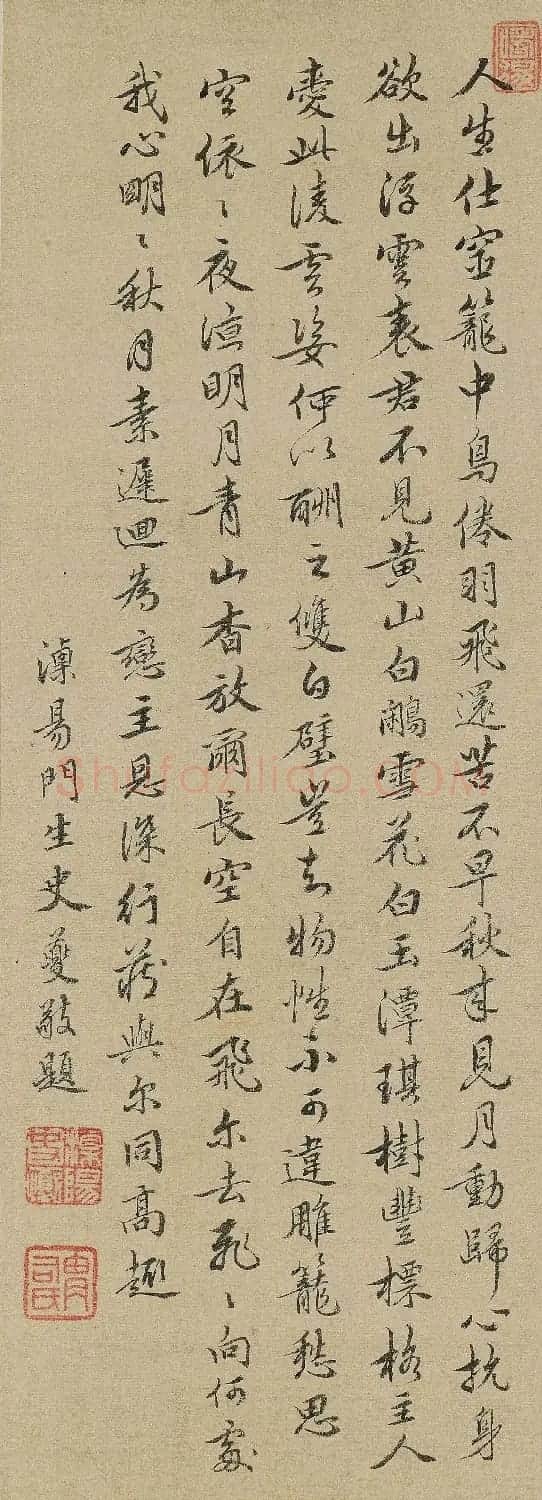 人生仕宦籠中鳥倦羽飛還苦不早秋來見月動歸心抗身
欲出浮雲表君不見黃山白鷴雪花白玉潭琪樹豐標格主人
愛此凌雲姿何以酬之雙白璧豈知物性不可違雕籠愁思
空依〻夜涼明月青山杳放爾長空自在飛尔去飛〻向何處
我心明〻秋月素遲迴為戀主恩深行藏與尔同高趣
溧陽門生史夔敬題
shufaziliao.com